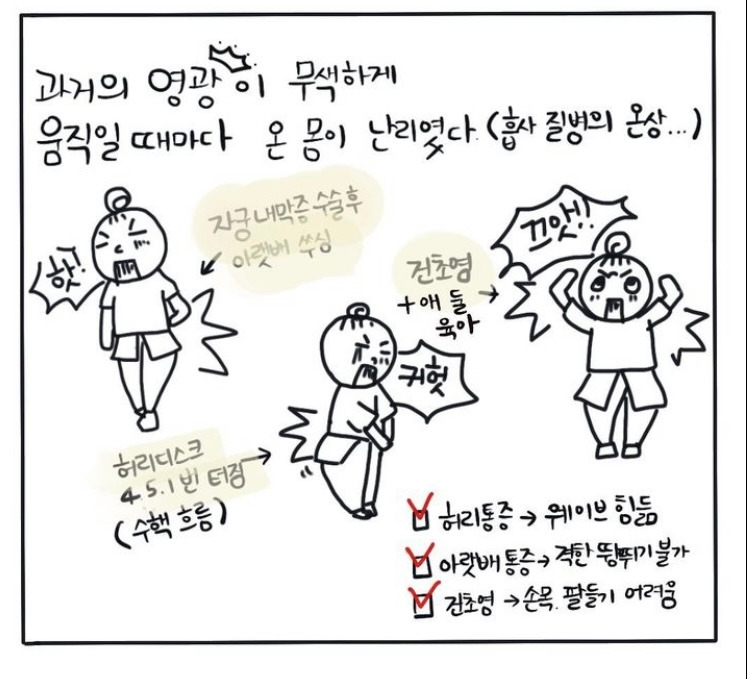 과거의 영광이 무색하게
움직일 때마다 온 몸이 난리였다. (흡사 질병의 온상...)
핫!
자궁내막증 수술후
아랫배 쑤심
끄앗!!
건초염
+ 애 둘
육아
귀헛
허리디스크
4.5.1번 터짐
(수핵 흐름)
허리통증 → 웨이브 힘듦
아랫배 통증 → 격한 뜀뛰기 불가
건초염 → 손목. 팔들기 어려움